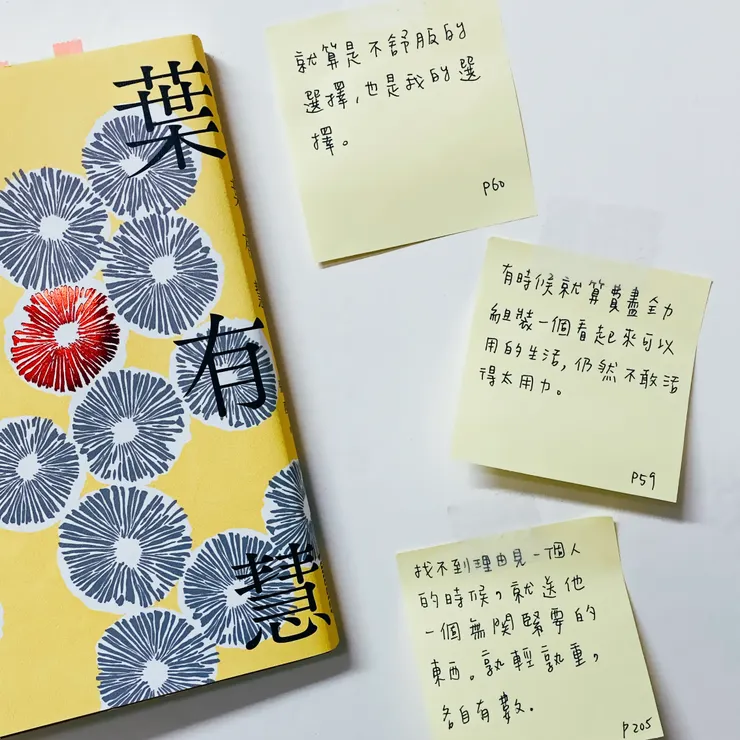 葉有慧
就算是不舒服的
選擇,也是我的選
擇。
P60
有時候就算費盡全力
組裝一個看起來可以
用的生活,仍然不敢活
得太用力。
P59
找不到理由見一個人
的時候,就送他
一個無關緊要的
東西。孰輕孰重,
各自有數。
P205